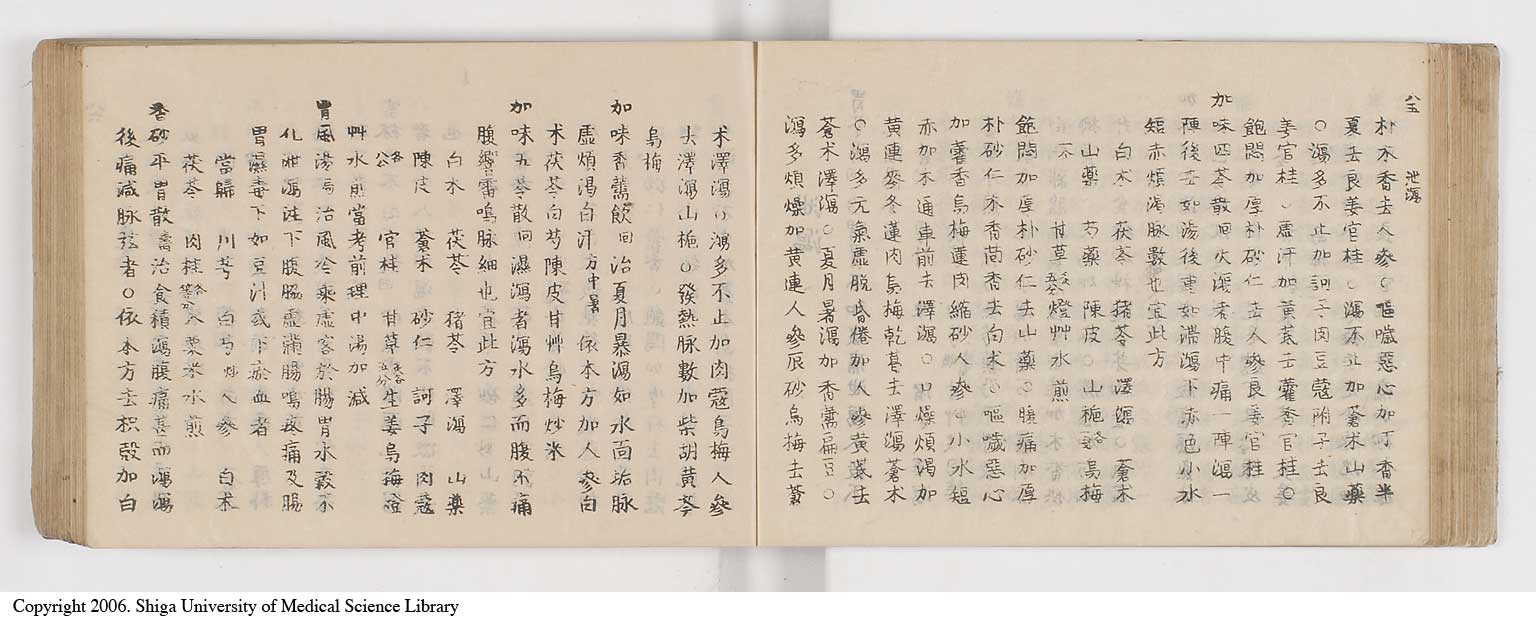 八五 泄瀉
朴木香去人參○嘔噦惡心加丁香半
夏去良姜官桂○瀉不止加蒼朮山藥
○瀉多不止加訶子肉豆蔻附子去良
姜官桂○虛汗加黃芪去藿香官桂○
飽悶加厚朴砂仁去人參良姜官桂
加味四苓散 回火瀉者腹中痛一陣瀉一
陣後去如湯後重如滯瀉下赤色小水
短赤煩渴脉數也宜此方
白朮 茯苓 猪苓 澤瀉 蒼朮
山藥 芍藥 陳皮 山梔 烏梅
甘草 燈艸水煎
飽悶加厚朴砂仁去山藥○腹痛加厚
朴砂仁木香茴香去白朮○嘔噦惡心
加藿香烏梅蓮肉縮砂人參○小水短
赤加木通車前去澤瀉○口燥煩渴加
黃連麥冬蓮肉烏梅乾葛去澤瀉蒼朮
○瀉多元氣虛脫昏倦加人參黃芪去
蒼朮澤瀉○夏月暑瀉加香薷扁豆○
瀉多煩燥加黃連人參辰砂烏梅去蒼
朮澤瀉○瀉多不止加肉蔻烏梅人參
去澤瀉山梔○發熱脉數加柴胡黃芩
烏梅
加味香薷飲 回治夏月暴瀉如水面垢脉
虛煩渴自汗方中暑 依本方加人參白
朮茯苓白芍陳皮甘艸烏梅炒米
加味五苓散 回濕瀉者瀉水多而腹不痛
腹響雷鳴脉細也宜此方
白朮 茯苓 猪苓 澤瀉 山藥
陳皮 蒼朮 砂仁 訶子 肉蔻
各一𠆢 官桂 甘草各五分 生姜烏梅燈
艸水煎當考前理中湯加減
胃風湯 局治風冷乘虛客於腸胃水穀不
化泄瀉注下腹脇虛滿腸鳴㽲痛及腸
胃濕毒下如豆汁或下瘀血者
當歸 川芎 白芍炒 人參 白朮
茯苓 肉桂各等分 入粟米水煎
香砂平胃散 壽治食積瀉腹痛甚而瀉瀉
後痛減脉弦者○依本方去枳殼加白